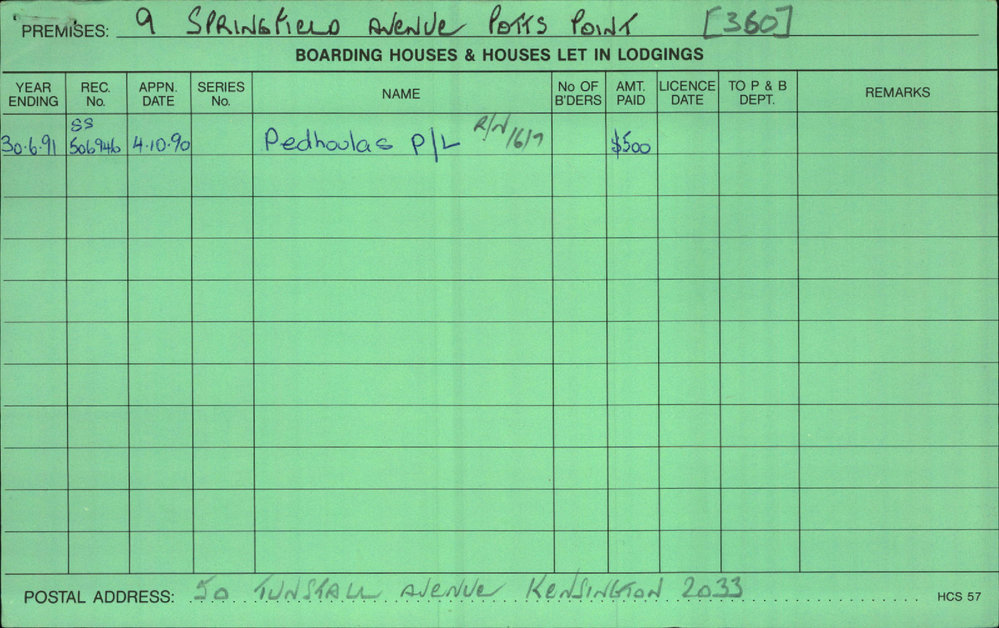 PREMISES: 9 SPRINGFIELD AVENUE POTTS POINT [360]
BOARDING HOUSES & HOUSES LET IN LODGINGS
YEAR ENDING REC. No. APPN. DATE SERIES No. NAME No OF B'DERS AMT. PAID LICENCE DATE TO P & B DEPT. REMARKS
30.6.91 SS 506946 4.10.90 Pedhoulas P/L R/N /6/9 $500
POSTAL ADDRESS: 50 TUNSTALL AVENUE KENSINGTON 2033 HCS 57